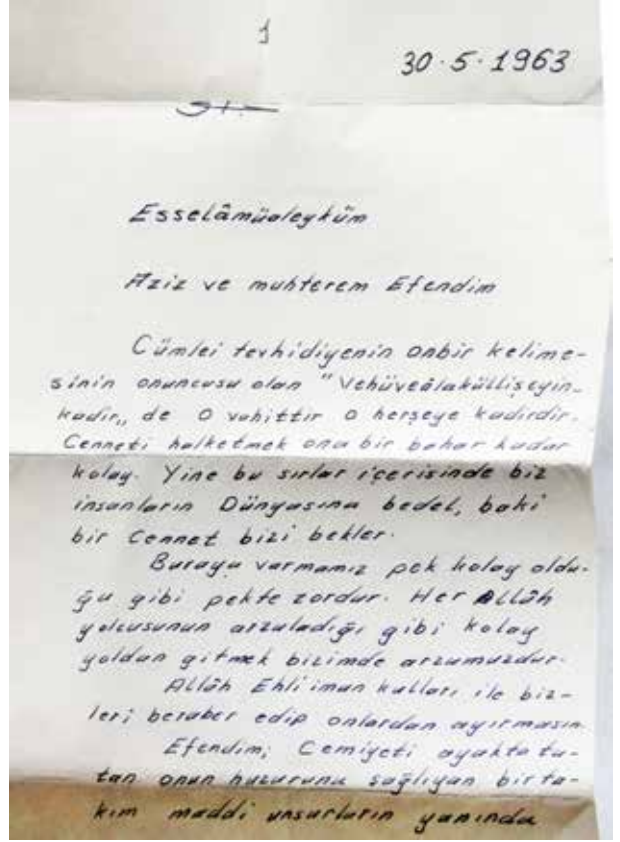 1
30.5.1963
Esselâmüaleyküm
Aziz ve muhterem Efendim
Cümlei tevhidiyenin onbir kelime-
sinin onuncusu olan "Vehüveâlaküllişeyin-
kadir„ de O vahittir O herşeye kadirdir.
Cenneti halketmek ona bir bahar kadar
kolay. Yine bu sırlar içerisinde biz
insanların Dünyasına bedel, baki
bir Cennet bizi bekler.
Buraya varmamız pek kolay oldu-
ğu gibi pekte zordur. Her Allâh
yolcusunun arzuladığı gibi kolay
yoldan gitmek bizimde arzumuzdur.
Allâh Ehli iman kulları ile biz-
leri beraber edip onlardan ayırmasın.
Efendim; Cemiyeti ayakta tu-
tan onun huzurunu sağlıyan birta-
kım maddi unsurların yanında